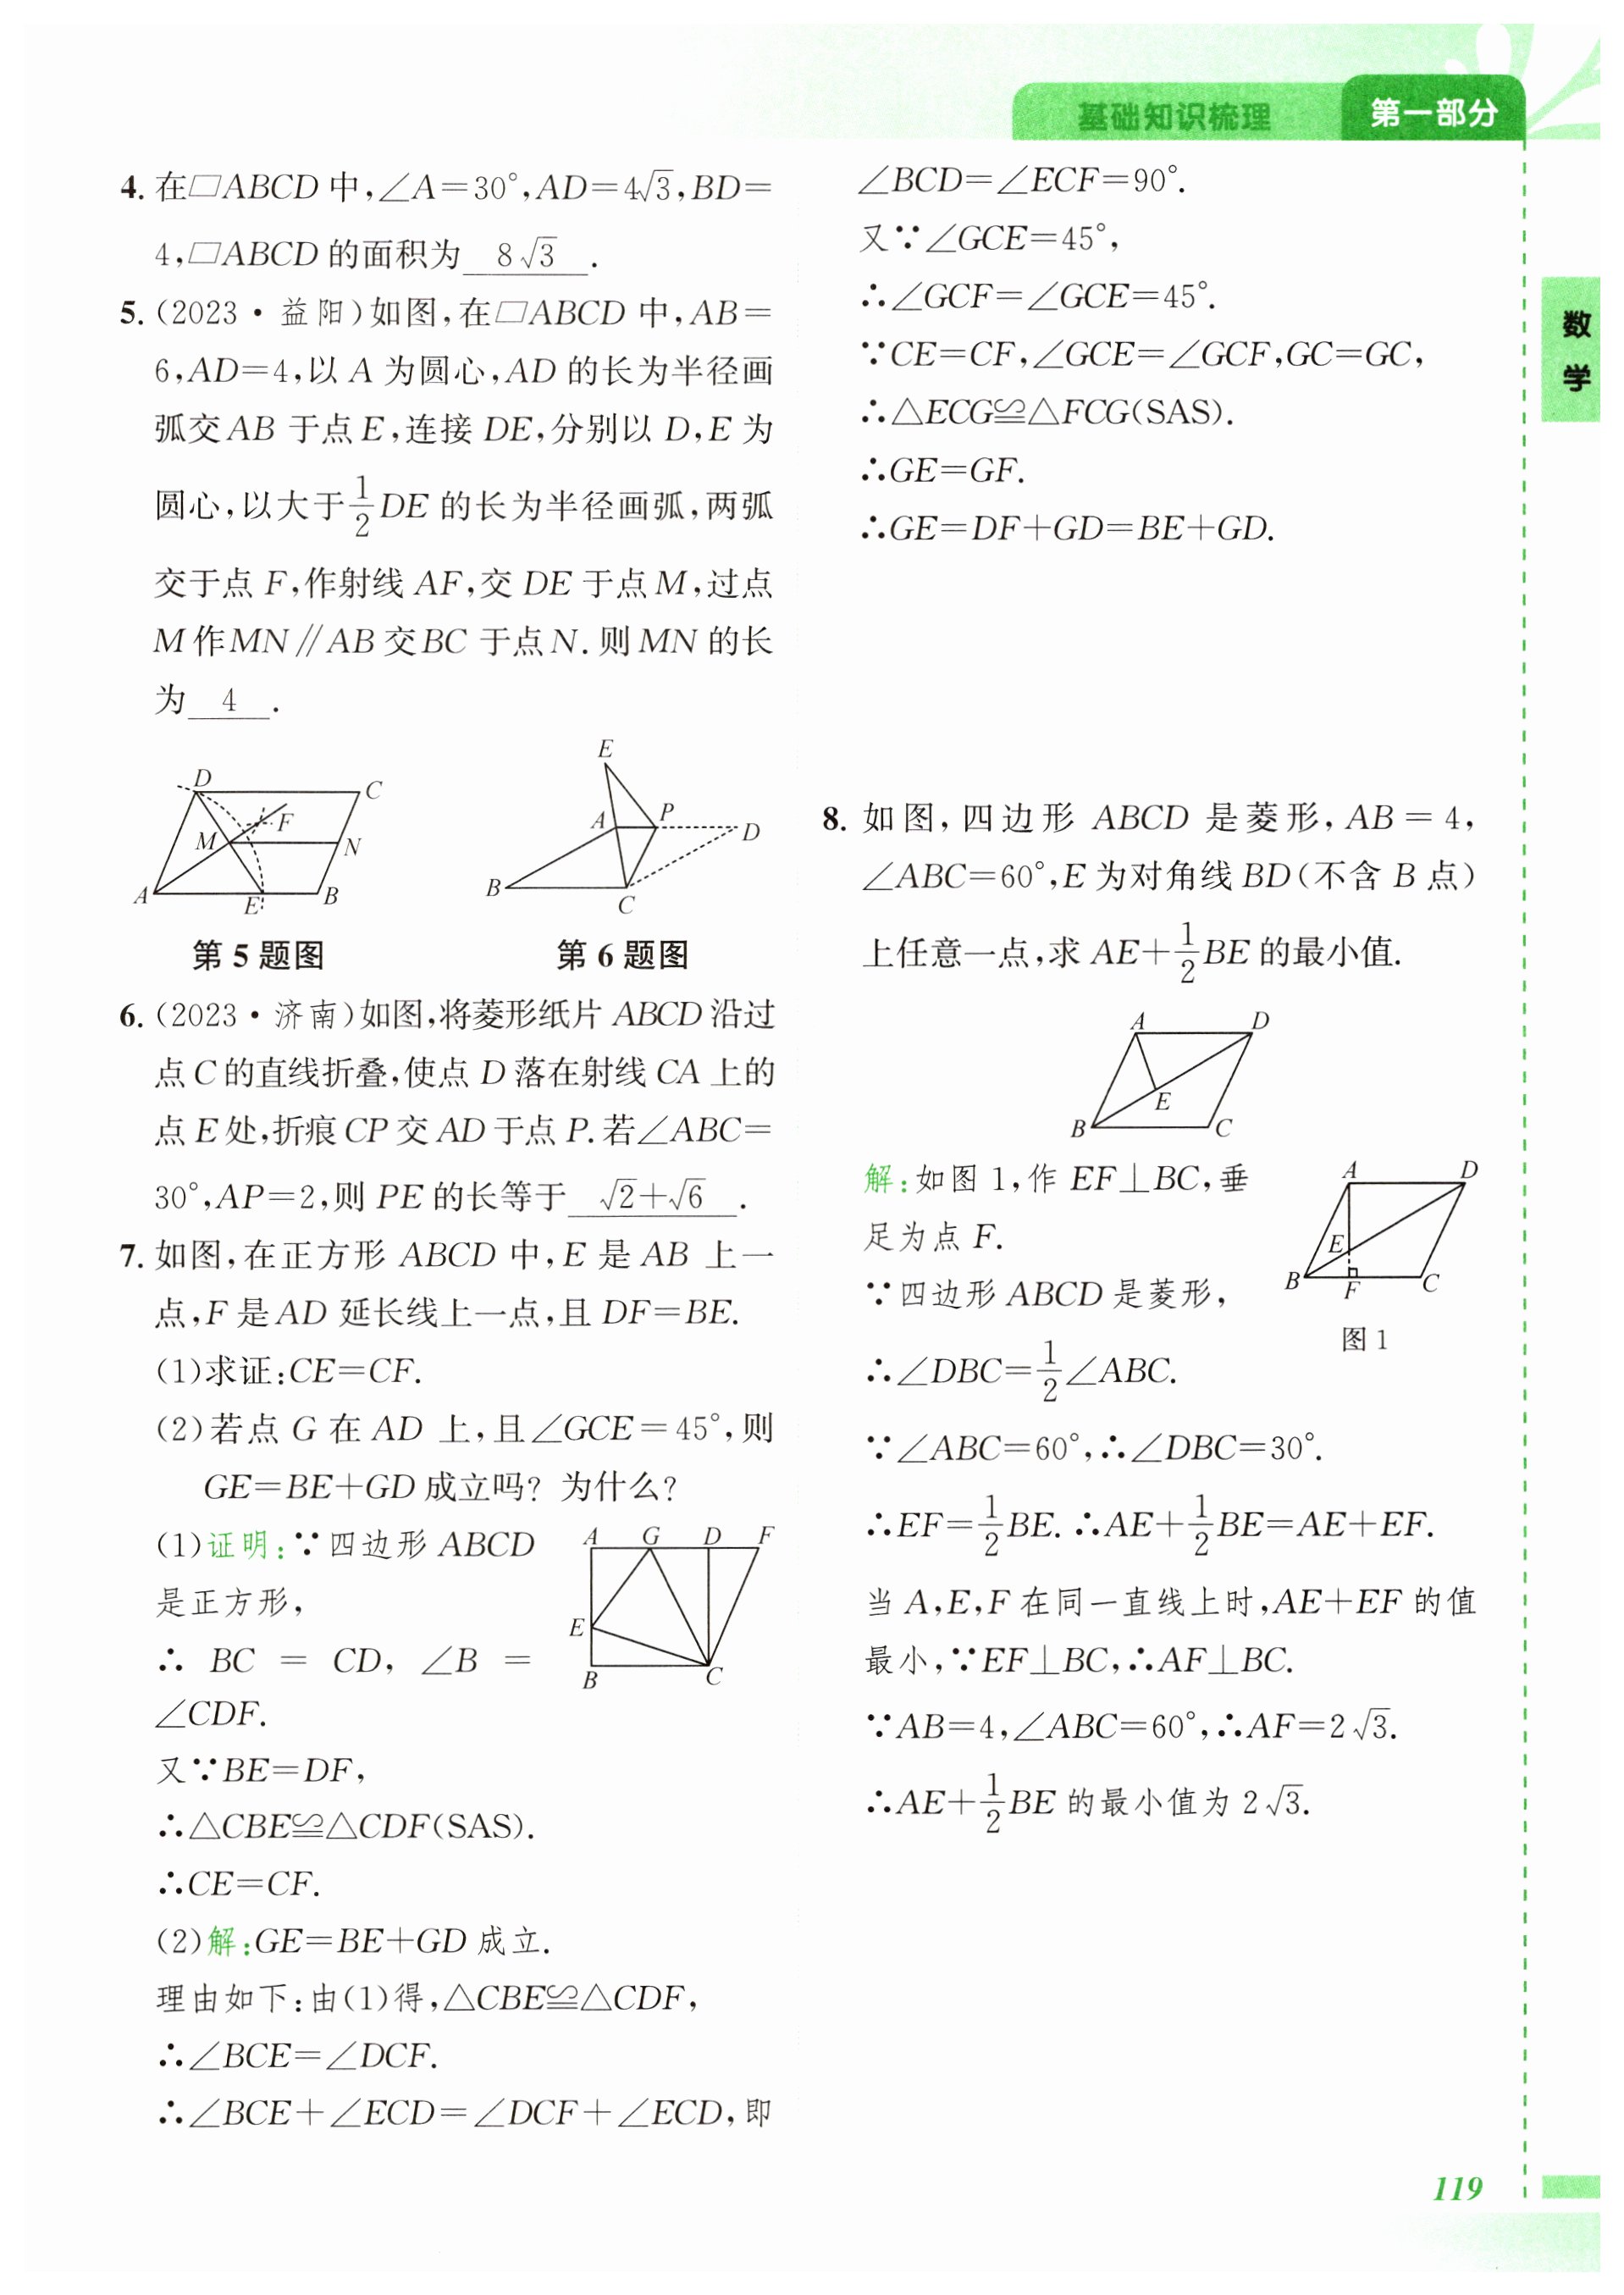 基础知识梳理 第一部分
数
学
4. 在▱ABCD 中,∠A=30°,AD=4√3,BD=
4,▱ABCD 的面积为 8√3 .
5. (2023·益阳)如图,在▱ABCD 中,AB=
6,AD=4,以 A 为圆心,AD 的长为半径画
弧交AB 于点E,连接 DE,分别以 D,E 为
圆心,以大于1/2DE 的长为半径画弧,两弧
交于点 F,作射线 AF,交 DE 于点M,过点
M作MN∥AB交BC 于点N. 则MN 的长
为 4 .
D C
M F N
A E B
第 5 题图
E
A P D
B C
第 6 题图
6. (2023·济南)如图,将菱形纸片 ABCD 沿过
点C的直线折叠,使点 D 落在射线 CA 上的
点 E 处,折痕 CP 交 AD 于点 P. 若∠ABC=
30°,AP=2,则 PE 的长等于 √2+√6 .
7. 如图,在正方形 ABCD 中,E 是 AB 上一
点,F 是AD 延长线上一点,且 DF=BE.
(1)求证:CE=CF.
(2)若点 G 在 AD 上,且∠GCE=45°,则
GE=BE+GD 成立吗? 为什么?
(1)证明:∵四边形 ABCD
是正方形,
∴ BC = CD, ∠B =
∠CDF.
A G D F
E
B C
又∵BE=DF,
∴△CBE≌△CDF(SAS).
∴CE=CF.
(2)解:GE=BE+GD 成立.
理由如下:由(1)得,△CBE≌△CDF,
∴∠BCE=∠DCF.
∴∠BCE+∠ECD=∠DCF+∠ECD,即
∠BCD=∠ECF=90°.
又∵∠GCE=45°,
∴∠GCF=∠GCE=45°.
∵CE=CF,∠GCE=∠GCF,GC=GC,
∴△ECG≌△FCG(SAS).
∴GE=GF.
∴GE=DF+GD=BE+GD.
8. 如图,四边形 ABCD 是菱形,AB=4,
∠ABC=60°,E 为对角线 BD(不含 B 点)
上任意一点,求 AE+1/2BE 的最小值.
A D
E
B C
解:如图 1,作 EF⊥BC,垂
足为点 F.
∵四边形 ABCD 是菱形,
∴∠DBC=1/2∠ABC.
A D
E
B F C
图 1
∵∠ABC=60°,∴∠DBC=30°.
∴EF=1/2BE. ∴AE+1/2BE=AE+EF.
当 A,E,F 在同一直线上时,AE+EF 的值
最小,∵EF⊥BC,∴AF⊥BC.
∵AB=4,∠ABC=60°,∴AF=2√3.
∴AE+1/2BE 的最小值为 2√3.
119